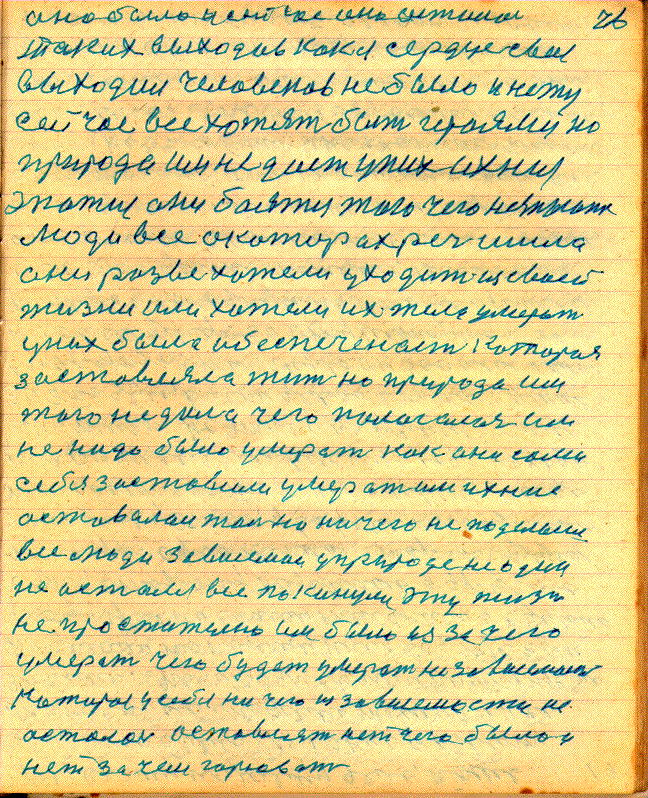 оно было и сейчас оно 76
таких выходов как я сердце свое
выходил человеков не было и нету
сейчас все хотят быт героями но
природа им не дает у них ихния
они боятся того чего
люди все о которах реч шила
они разве хотели уходит из своей
жизни или хотели их тела умерат
у них была обеспеченост которая
заставляла жит но природа им
того не дала чего полагалося им
не надо было умерат как они сами
себя заставили умерат им ихние
оставалаи толко ничего не поделаеш
все люди зависемаи у природе не один
не осталса все покинули эту жизн
не простително им было из за чего
умерат чего будет умерат независемаст
которое у себя ничего из зависемости не
осталос оставлят нет чего было и
нет зачем горават